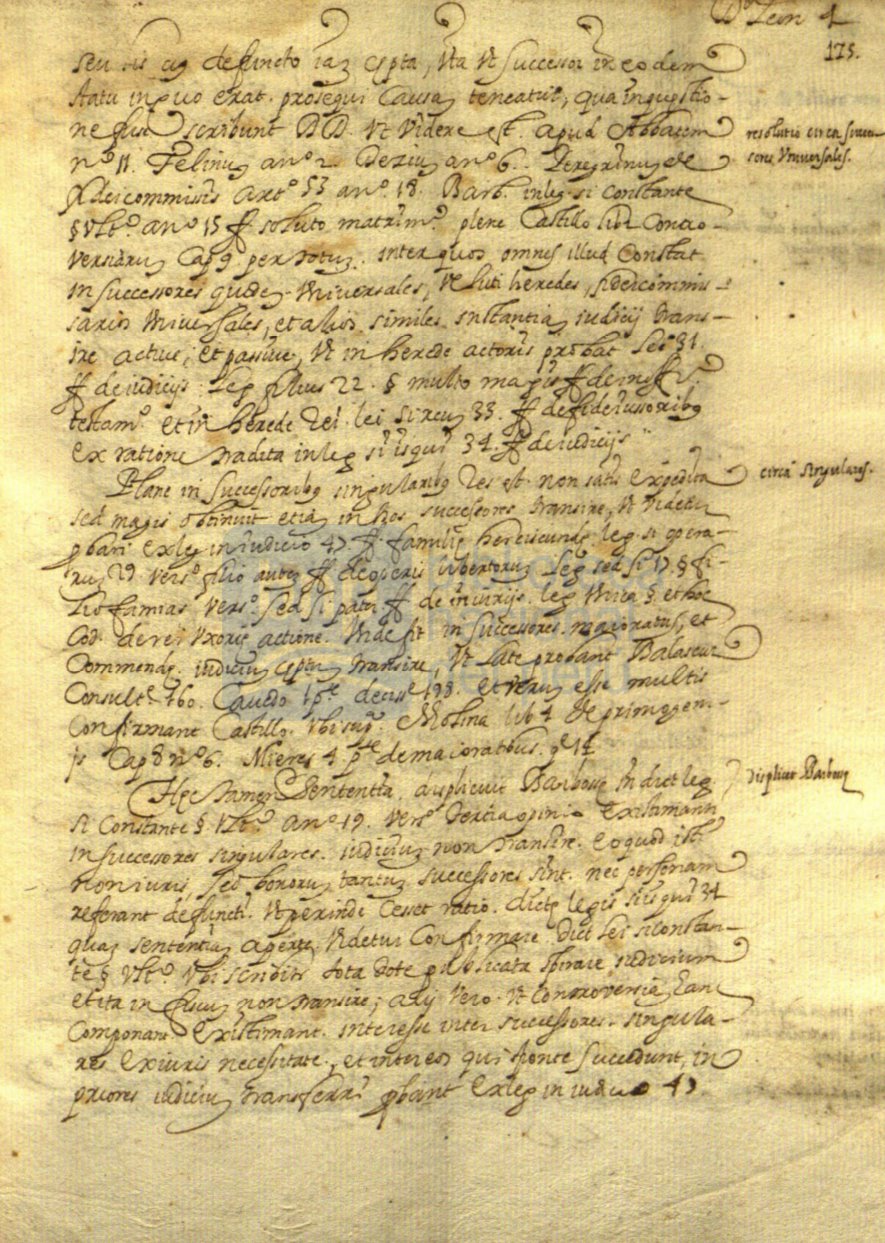 175.
seu lis cum defuncto iam cepta, ita ut successor in eodem
statu in quo erat prosequi causam teneatur, qua in quęstio-
ne scribunt DD. ut videre est apud Abbatem
nº 11. Felinum a nº 2. Dezium a nº 6. Peregrinum de
fideicommissis art.º 53 a nº 18. Barb. in leg. si constante
§ ult.º a nº 15 ff soluto matrim.º plene Castillo lib. contro-
versiarum cap. 9 per totum. inter quos omnes illud constat
in successores quidem universales, veluti heredes, fideicommis-
sarios universales, et alios similes instantiam iudicij trans-
ire active, et passive, ut in herede actoris probat leg. 31.
ff de iudicijs leg. filius 22. § multo magis ff de inoff.
testam.º et in herede rei. lei si reus 33. ff de fideiussoribus
ex ratione tradita in leg. si is qui 34. ff de iudicijs
resolutio circa succes
sores universales.
Plane in successoribus singularibus res est non satis expedita
sed magis obtinuit etiam in hos successores transire, ut videtur
probari ex leg. in iudicio 47 ff familię herciscundę leg. si opera-
rum 29 vers.º filio autem ff de operis libertorum leg. sed si 17 § fi-
lio famias vers.º sed si pater ff de iniurijs. leg. unica § et hoc
Cod. de rei uxorię actione. unde fit in successores maioratus, et
Commendę iudicium ceptum transire, ut late probant Balascus
Consult.e 160. Cauedo 1 p.te deciss.e 198. et verum esse multis
confirmant Castillo ubi sup.ª Molina lib. 4 de primogen-
js cap. 8 nº 6. Mieres 4 p.te de maioratibus. q.e 14
circa singulares.
Hęc tamen sententia displicuit Barbosę in dict. leg.
si constante § ult.º a nº 19. vers.º tertia opinio existimanti
in successores singulares iudicium non transire. eo quod isti
non iuris, sed bonorum tantum successores sint. nec personam
referant defuncti. ut perinde cesset ratio dictę legis si is qui 34
quam sententiam aperte videtur confirmare dict. lei si constan-
te § ult.º ubi scribitur tota dote publicata spirare iudicium
et ita in fiscum non transire; alij vero ut controversiam hanc
componant existimant interesse inter successores singula-
res ex iuris necessitate, et inter eos qui sponte succedunt, in
priores iudicium transferri probant ex leg. in iudicio 47
displicet Barbosę